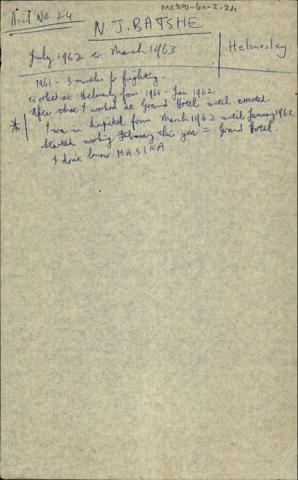 MCA91-6-2-24
Acc. No. 24
N J. BATSHE
July, 1962 to March 1963
Helmsley
1961 - 3 months for fighting
Worked at Helmsley from 1961 - Jan 1962
After that I worked at Grand Hotel until arrested.
* I was in hospital from March 1962 until January 1963.
Started working February this year = Grand Hotel
I don't know MASIKA